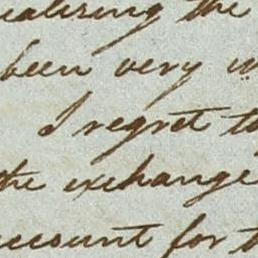 ealising the
been very
I regret to
the exchange
account for